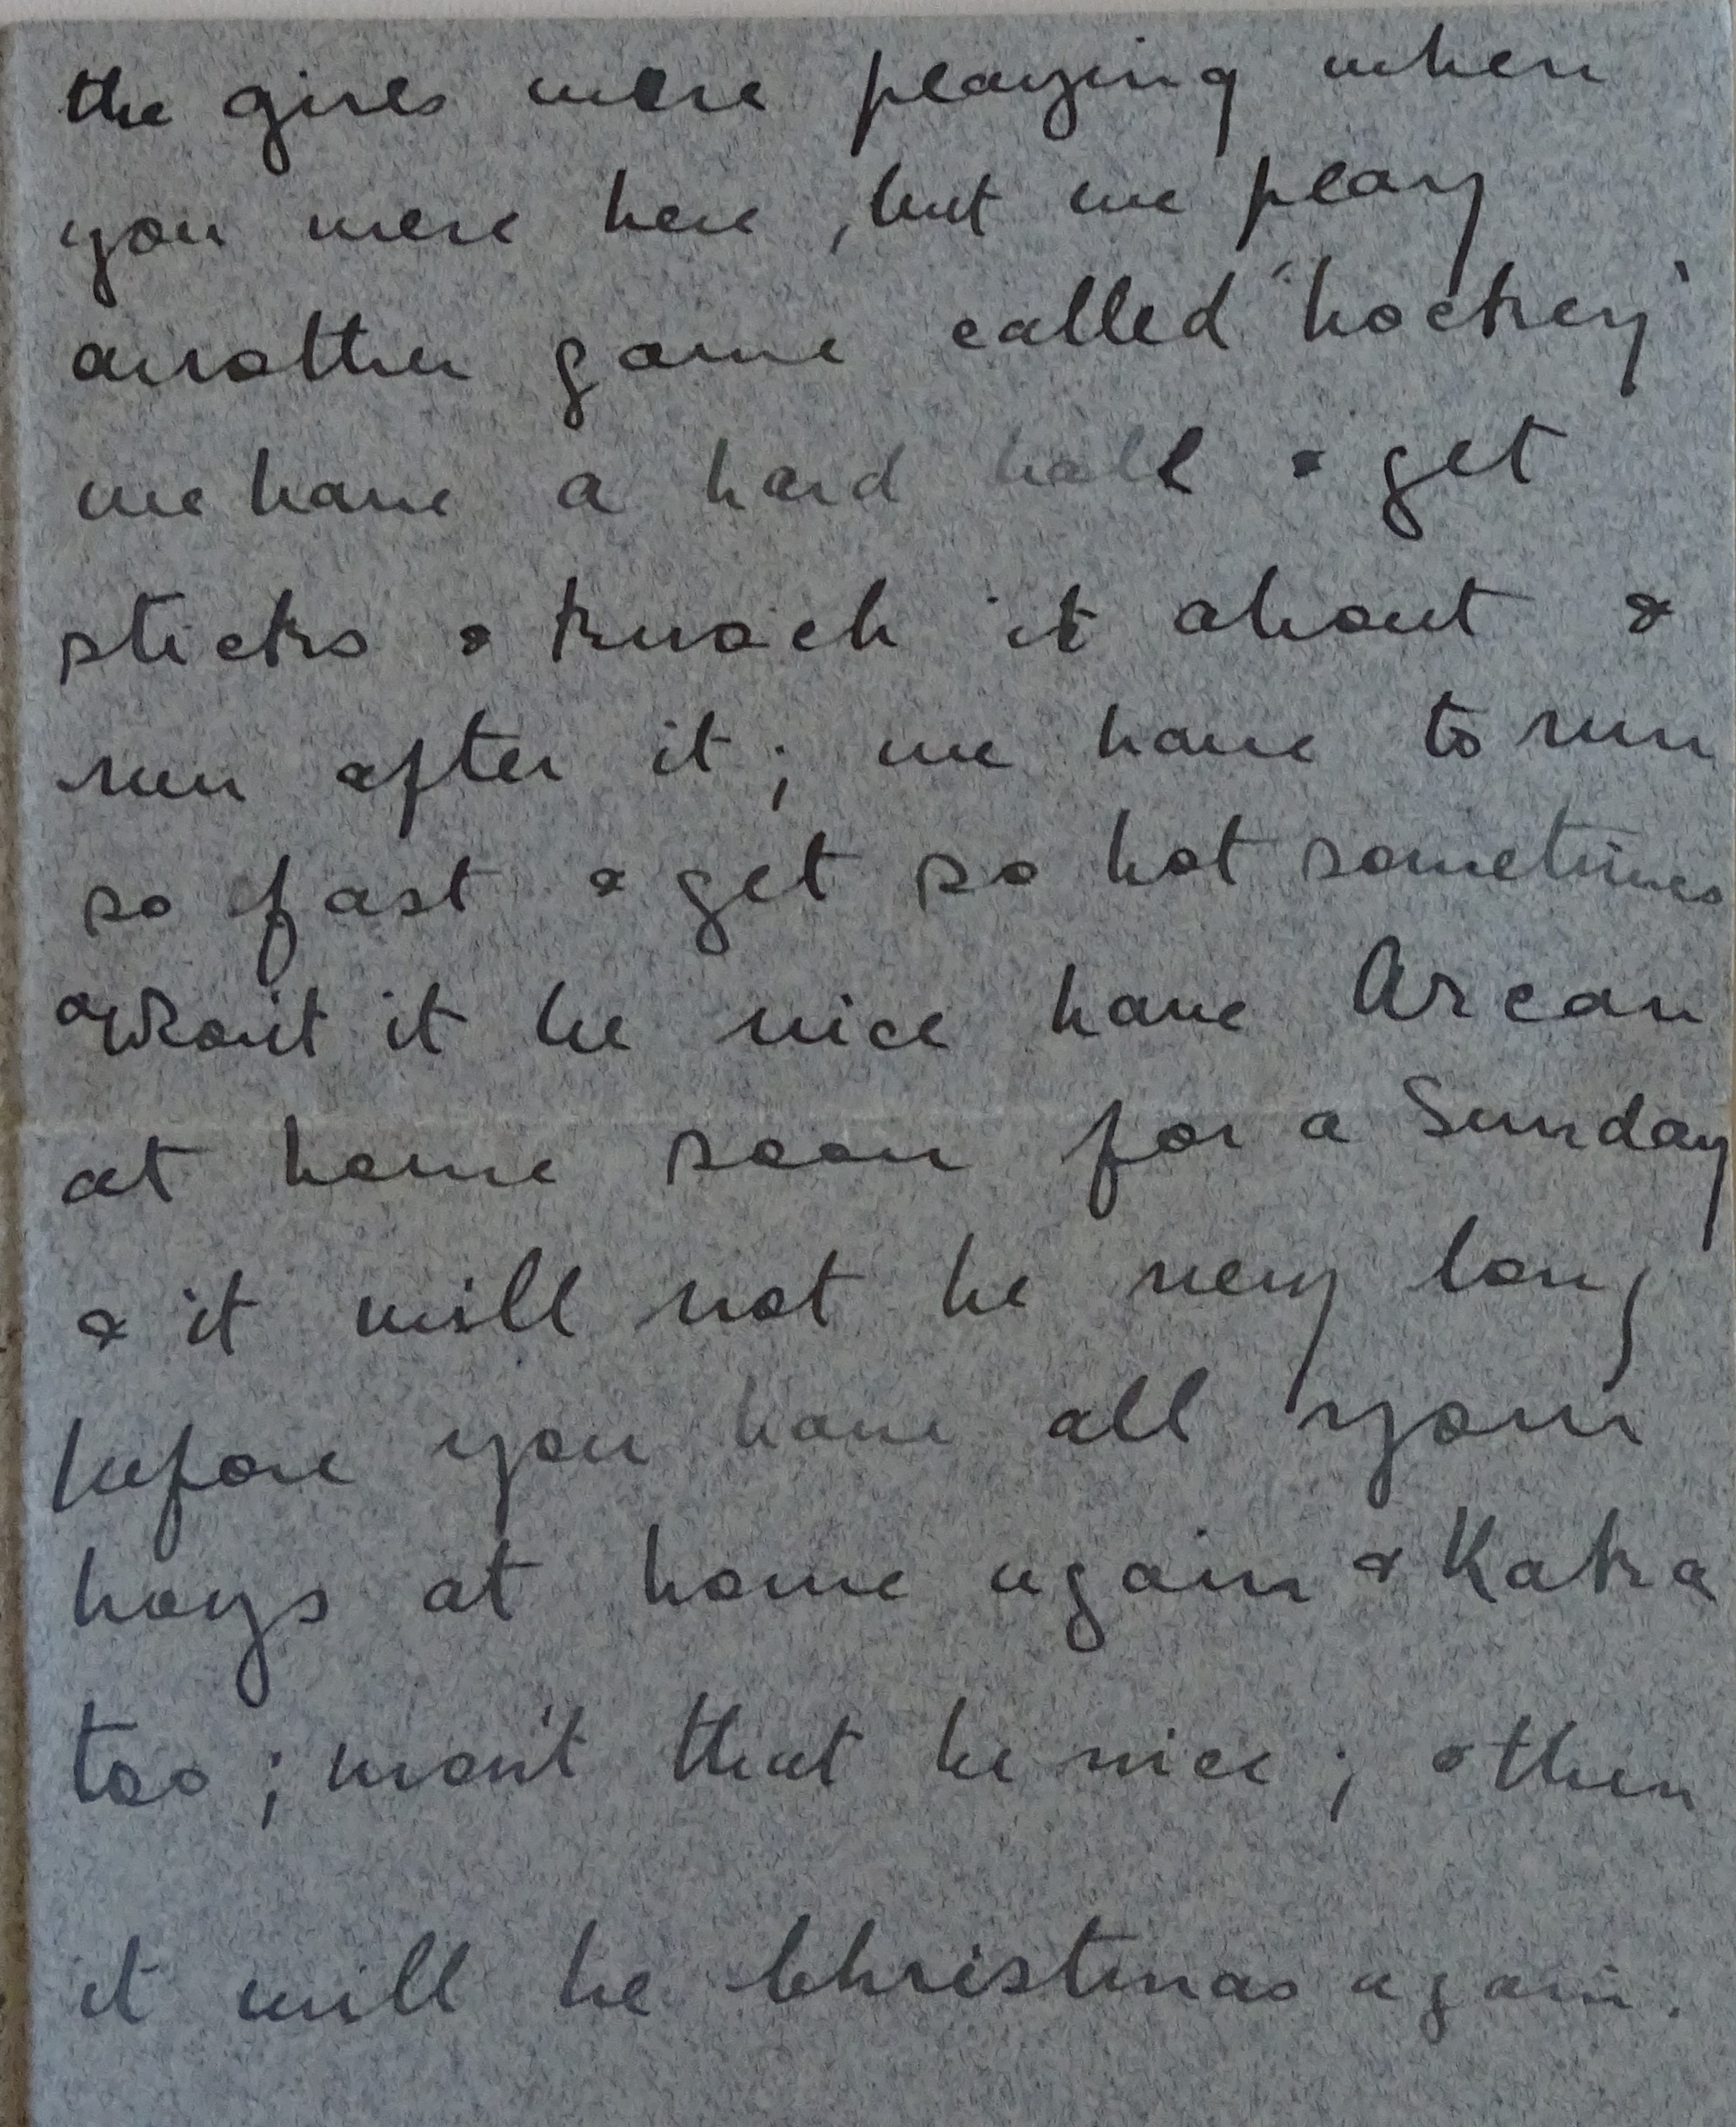 the girls were playing when
you were here, but we play
another game called 'hockey'
we have a hard ball & get
sticks & knock it about &
run after it; we have to run
so fast & get so hot sometimes
Won't it be nice have
at home soon for a Sunday
& it will not be very long
before you have all your
boys at home again & Katra
too; won't that be nice; & then
it will be Christmas again.